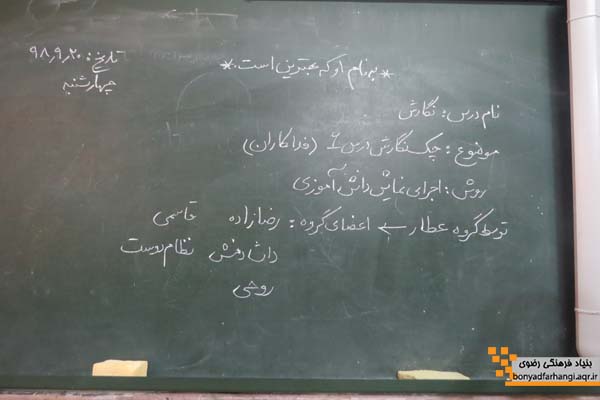 * به نام او که بهترین است. *
تاریخ: ۹۸٫۹٫۲۰
چهارشنبه
نام درس: نگارش
موضوع: چک نگارش درس ۶ (فداکاران)
روش: اجرای نمایش دانش آموزی
توسط گروه عطار ← اعضای گروه: رضازاده قاسمی
دانش نظام دوست
روشنی
بنیاد فرهنگی رضوی
bonyadfarhangi.aqr.ir